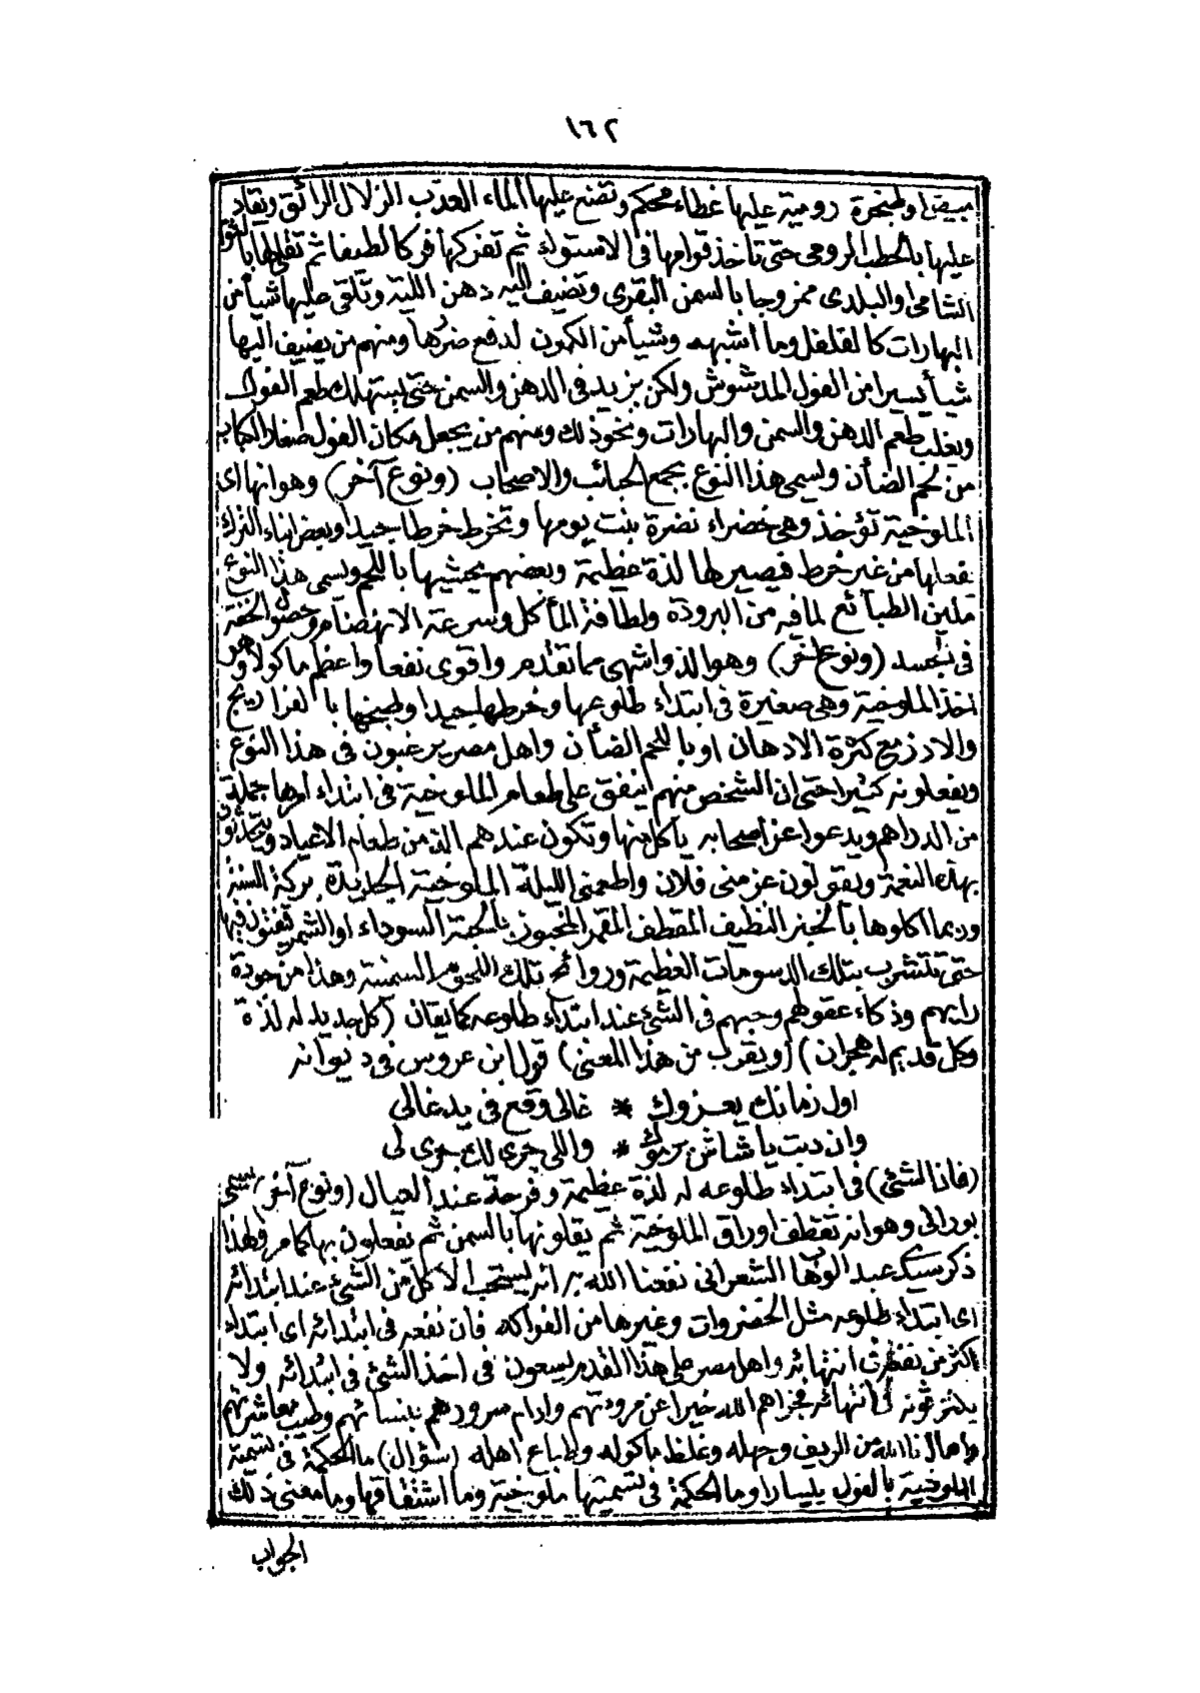 ١٦٢
مبيض او طنجرة رومية عليها غطاء محكم وتضع عليها الماء العذب الزلال الرائق ويقاد
عليها بالحطب الرومى حتى تأخذ قوامها فى الاستواء ثم تفركها فركا لطيفا ثم تقليها بالثوم
الشامى او البلدى ممزوجا بالسمن البقرى وتضيف اليه دهن اللية وتلقى عليها شيأ من
البهارات كالفلفل وما اشبهه وشيأ من الكمون لدفع ضررها ومنهم من يضيف اليها
شيأ يسيرا من الفول المدشوش ولكن يزيد فى الدهن والسمن حتى يستهلك طعم الفول
ويغلب طعم الدهن والسمن والبهارات ونحو ذلك ومنهم من يجعل مكان الفول صغار الكباب
من لحم الضأن ويسمى هذا النوع بجمع الحبائب والاصحاب (ونوع آخر) وهو انها اى
الملوخية تؤخذ وهى خضراء نضرة بنت يومها وتخرط خرطا جيدا وبعض ابناء الترك
يفعلها من غير خرط فيصير لها لذة عظيمة وبعضهم يحشيها باللحم ويسمى هذا النوع
ملين الطبائع لما فيه من البرودة ولطافة المأكل وسرعة الانهضام وحصول الخفة
فى الجسد (ونوع آخر) وهو الذ واشهى مما تقدم واقوى نفعا واعظم ماكولا وهو
اخذ الملوخية وهى صغيرة فى ابتداء طلوعها وخرطها جيدا وطبخها بالفراريج
والارز مع كثرة الادهان او باللحم الضأن واهل مصر يرغبون فى هذا النوع
ويفعلونه كثيرا حتى ان الشخص منهم ينفق على طعام الملوخية فى ابتداء امرها جملة
من الدراهم ويدعوا عز اصحابه ياكل منها وتكون عندهم الذ من طعام الاعياد ويتحدثون
بهذه النعمة ويقولون عزمنى فلان واطعمنى الليلة الملوخية الجديدة بركة السنة
وربما اكلوها بالخبز النظيف المقطف المقمر المخبوز بالحبة السوداء او الشمر فيفتون فيها
حتى تتشرب بتلك الدسومات العظيمة وروائح تلك اللحوم السمينة وهذا من جودة
رايهم وذكاء عقولهم وحبهم فى الشئ عند ابتداء طلوعه كما يقال (كل جديد له لذة
وكل قديم له هجران) (ويقرب من هذا المعنى) قول ابن عروس فى ديوانه
اول زمانك يعزوك * غالى وقع فى يد غالى
وان دبت يا شاش يرموك * واللى جرى لك جرى لى
(فاذا الشئ) فى ابتداء طلوعه له لذة عظيمة وفرحة عند العيال (ونوع آخر) يسمى
بورانى وهو انه تقطف اوراق الملوخية ثم يقلونها بالسمن ثم يفعلون بها كما مر ولهذا
ذكر سيدى عبد الوهاب الشعرانى نفعنا الله به انه يستحب الاكل من الشئ عند ابتدائه
اى ابتداء طلوعه مثل الخضروات وغيرها من الفواكه فان نفعه فى ابتدائه اى ابتداء
اكثر من نفعه فى انتهائه واهل مصر على هذا القدم يسعون فى اخذ الشئ فى ابتدائه ولا
يكترثونه فى انتهائه فجزاهم الله خيرا عن مروءتهم وادام سرورهم بنسائهم وطيب معاشرتهم
واحال ناالله من الريف وجهله وغلظ ماكوله وطباع اهله (سؤال) ما الحكمة فى تسمية
الملوخية بالفول بيسارا وما الحكمة فى تسميتها ملوخية وما اشتقاقها وما معنى ذلك
الجواب